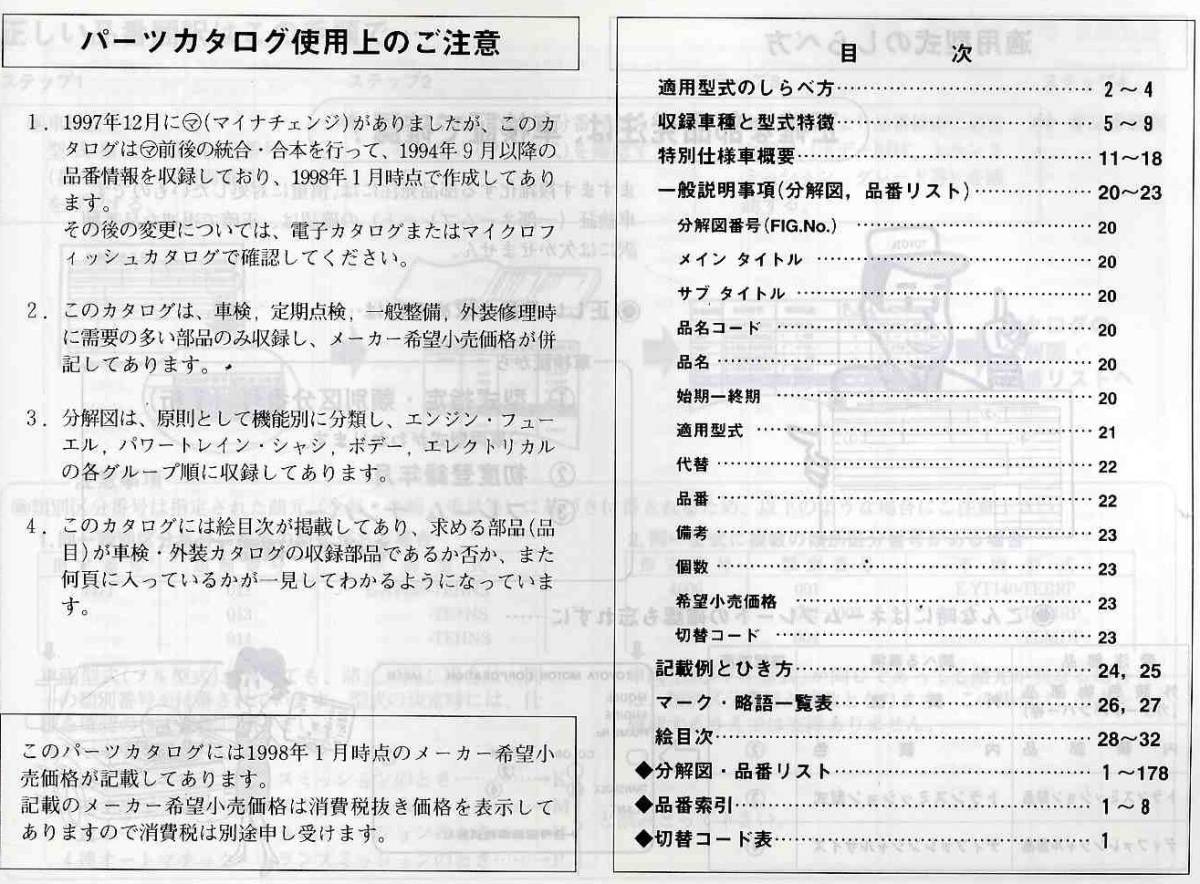 パーツカタログ使用上のご注意
1. 1997年12月に㋮(マイナチェンジ)がありましたが、このカ
タログは㋮前後の統合・合本を行って、1994年9月以降の
品番情報を収録しており、1998年1月時点で作成してあり
ます。
その後の変更については、電子カタログまたはマイクロフ
ィッシュカタログで確認してください。
2. このカタログは、車検, 定期点検, 一般整備, 外装修理時
に需要の多い部品のみ収録し、メーカー希望小売価格が併
記してあります。
3. 分解図は、原則として機能別に分類し、エンジン・フュー
エル, パワートレイン・シャシ, ボデー, エレクトリカル
の各グループ順に収録してあります。
4. このカタログには絵目次が掲載してあり、求める部品(品
目)が車検・外装カタログの収録部品であるか否か、また
何頁に入っているかが一見してわかるようになっていま
す。
このパーツカタログには1998年1月時点のメーカー希望小
売価格が記載してあります。
記載のメーカー希望小売価格は消費税抜き価格を表示して
ありますので消費税は別途申し受けます。
目 次
適用型式のしらべ方……………………………… 2～4
収録車種と型式特徴……………………………… 5～9
特別仕様車概要…………………………………… 11～18
一般説明事項(分解図, 品番リスト)…………… 20～23
分解図番号(FIG.No.)…………………………… 20
メイン タイトル………………………………… 20
サブ タイトル…………………………………… 20
品名コード………………………………………… 20
品名………………………………………………… 20
始期ー終期………………………………………… 20
適用型式…………………………………………… 21
代替………………………………………………… 22
品番………………………………………………… 22
備考………………………………………………… 23
個数………………………………………………… 23
希望小売価格……………………………………… 23
切替コード………………………………………… 23
記載例とひき方…………………………………… 24, 25
マーク・略語一覧表……………………………… 26, 27
絵目次……………………………………………… 28～32
◆分解図・品番リスト…………………………… 1～178
◆品番索引………………………………………… 1～8
◆切替コード表…………………………………… 1